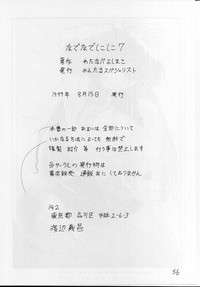 なでなでしこしこ7
著作 めたなかよしまこ
発行 めんたるスペシャリスト
1999年 8月15日 発行
本書の一部 あるいは 全部について
いかなる方法によっても 無断で
複製 紹介 等 行う事は禁止します
当サークルの発行物は
書店販売 通販 共にしておりません
142
東京都 品川区 中延 2-6-3
渡辺義昌
56